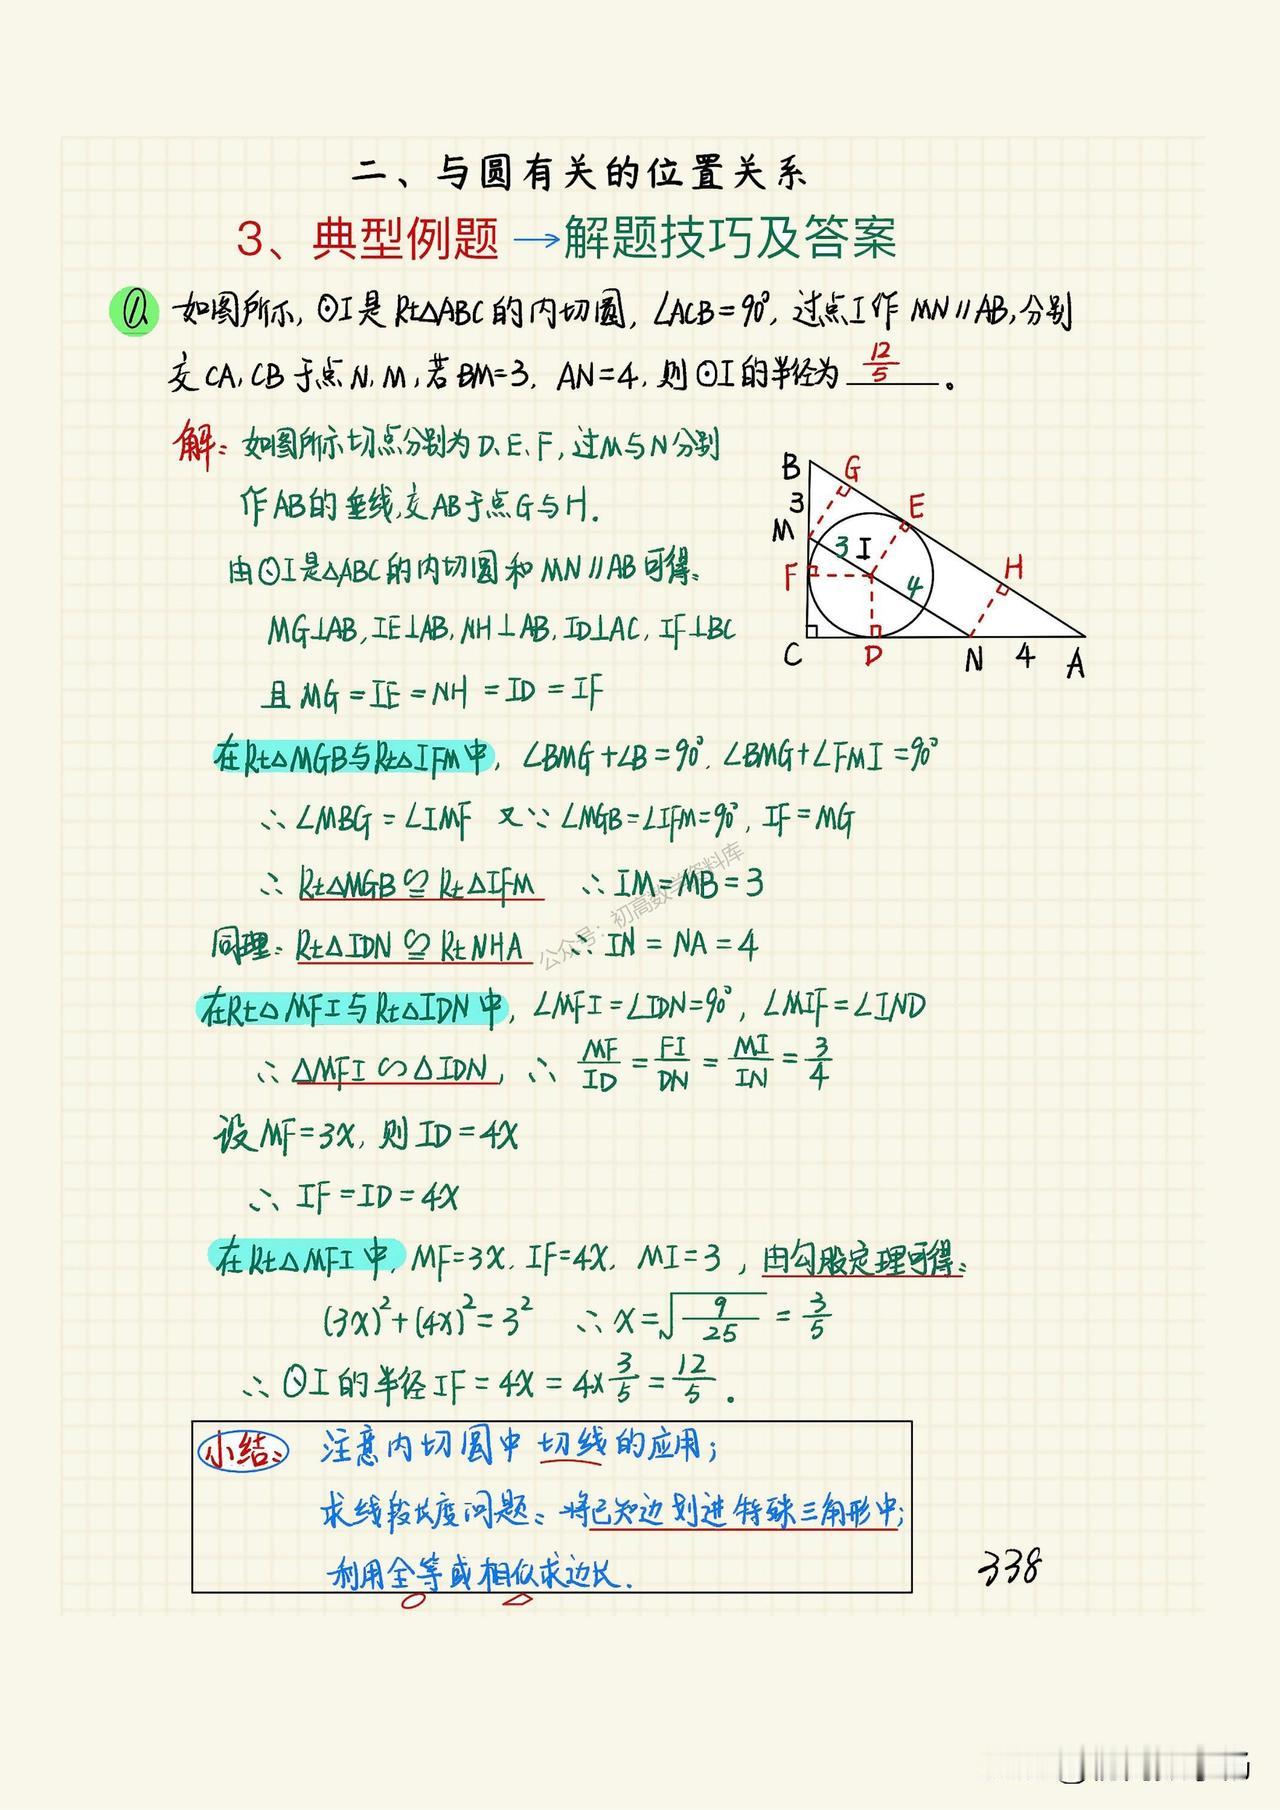 二、与圆有关的位置关系
3、典型例题→解题技巧及答案
① 如图所示, ⊙I是Rt△ABC的内切圆, ∠ACB=90°, 过点I作 MN∥AB,分别
交CA,CB于点N,M,若BM=3, AN=4,则⊙I的半径为 12/5 。
解: 如图所示切点分别为D、E、F,过M与N分别
作AB的垂线,交AB于点G与H.
由⊙I是△ABC的内切圆和MN∥AB可得:
MG⊥AB, IE⊥AB, NH⊥AB, ID⊥AC, IF⊥BC
且 MG=IE=NH=ID=IF
B G
3 E
M 3 I
F 4 H
C D N 4 A
在Rt△MGB与Rt△IFM中, ∠BMG+∠B=90°, ∠BMG+∠FMI=90°
∴ ∠MBG=∠IMF 又∵ ∠MGB=∠IFM=90°, IF=MG
∴ Rt△MGB≌Rt△IFM ∴ IM=MB=3
同理: Rt△IDN≌RtNHA ∴ IN=NA=4
公众号：初高数学资料库
在Rt△MFI与Rt△IDN中, ∠MFI=∠IDN=90°, ∠MIF=∠IND
∴ △MFI∽△IDN, ∴ MF/ID=FI/DN=MI/IN=3/4
设MF=3x, 则ID=4x
∴ IF=ID=4x
在Rt△MFI中, MF=3x, IF=4x, MI=3, 由勾股定理可得:
(3x)²+(4x)²=3² ∴ x=√(9/25)=3/5
∴ ⊙I的半径IF=4x=4×3/5=12/5.
小结: 注意内切圆中切线的应用;
求线段长度问题: 将已知边划进特殊三角形中;
利用全等或相似求边长.
338